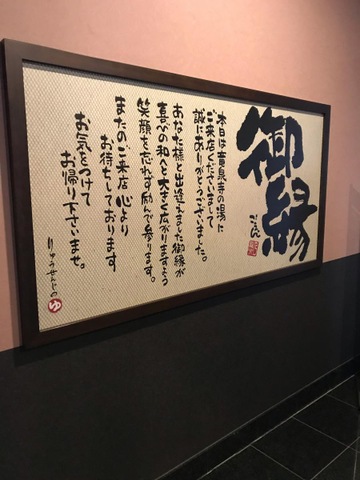 御縁
ごえん
本日は竜泉寺の湯に
ご来店くださいまして
誠にありがとうございました。
あなた様と出逢えました御縁が
喜びの和へと大きく広がりますよう
笑顔を忘れず励んで参ります。
またのご来店 心より
お待ちしております
お気をつけて
お帰り下さいませ。
りゅうせんじの ゆ